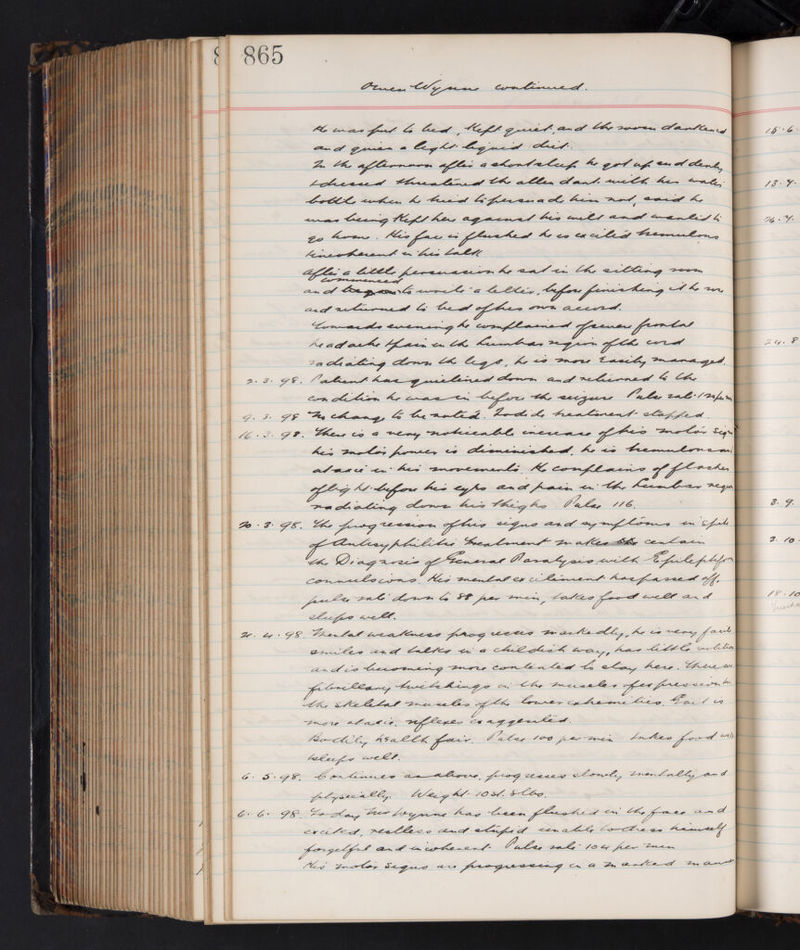 865
Owen Wynne continued.
He was put to bed, kept quiet, and the room darkened
and given a light liquid diet.
In the afternoon after a short sleep he got up suddenly
& dressed threatened the attendant with his water
bottle when he tried to persuade him not, said he
was being kept here against his will and wanted to
go home. His face is flushed he is excited tremulous
& incoherent in his talk
After a little persuasion he sat in the sitting room
commenced
and began to write a letter, before finishing it he rose
and returned to bed of his own accord.
Towards evening he complained of severe frontal
headache & pain in the lumbar region of the cord
radiating down the legs, he is more easily managed.
2.3.98. Patient has quietened down and returned to the
condition he was in before the seizure Pulse rate
9.3.98 No change to be noted. Iodide treatment stopped.
16.3.98. There is a very noticeable increase of his motor signs
his motor power is diminished, he is tremulous and
ataxic in his movements. He complains of flashes
of light before his eyes and pain in the lumbar region
radiating down his thighs Pulse 116.
20.3.98. The progression of his signs and symptoms in spite
of Antisyphilitic treatment makes certain
the Diagnosis of General Paralysis with Epileptiform
convulsions His mental excitement has passed off,
pulse rate down to 88 per min, takes food well and
sleeps well.
21.4.98 Mental weakness progresses markedly, he is very facile
smiles and talks in a childish way, has little
and is becoming more contented to stay here. There are
fibrillary twitchings in the muscles of expression &
the skeletal muscles of the lower extremities. Gait is
more ataxic, reflexes exaggerated.
Bodily health fair. Pulse 100 per min takes food well
& sleeps well.
6.5.98. Continues as above, progresses slowly mentally and
physically. Weight 10st. 8lbs.
6.6.98 To day Mr Wynne has been flushed in the face and
excited, restless and stupid unable to dress himself
forgetful and incoherent Pulse rate 104 per min
His motor signs are progressing in a marked manner
15.6
13.7.
24.8
3.9.
2.10
18.10